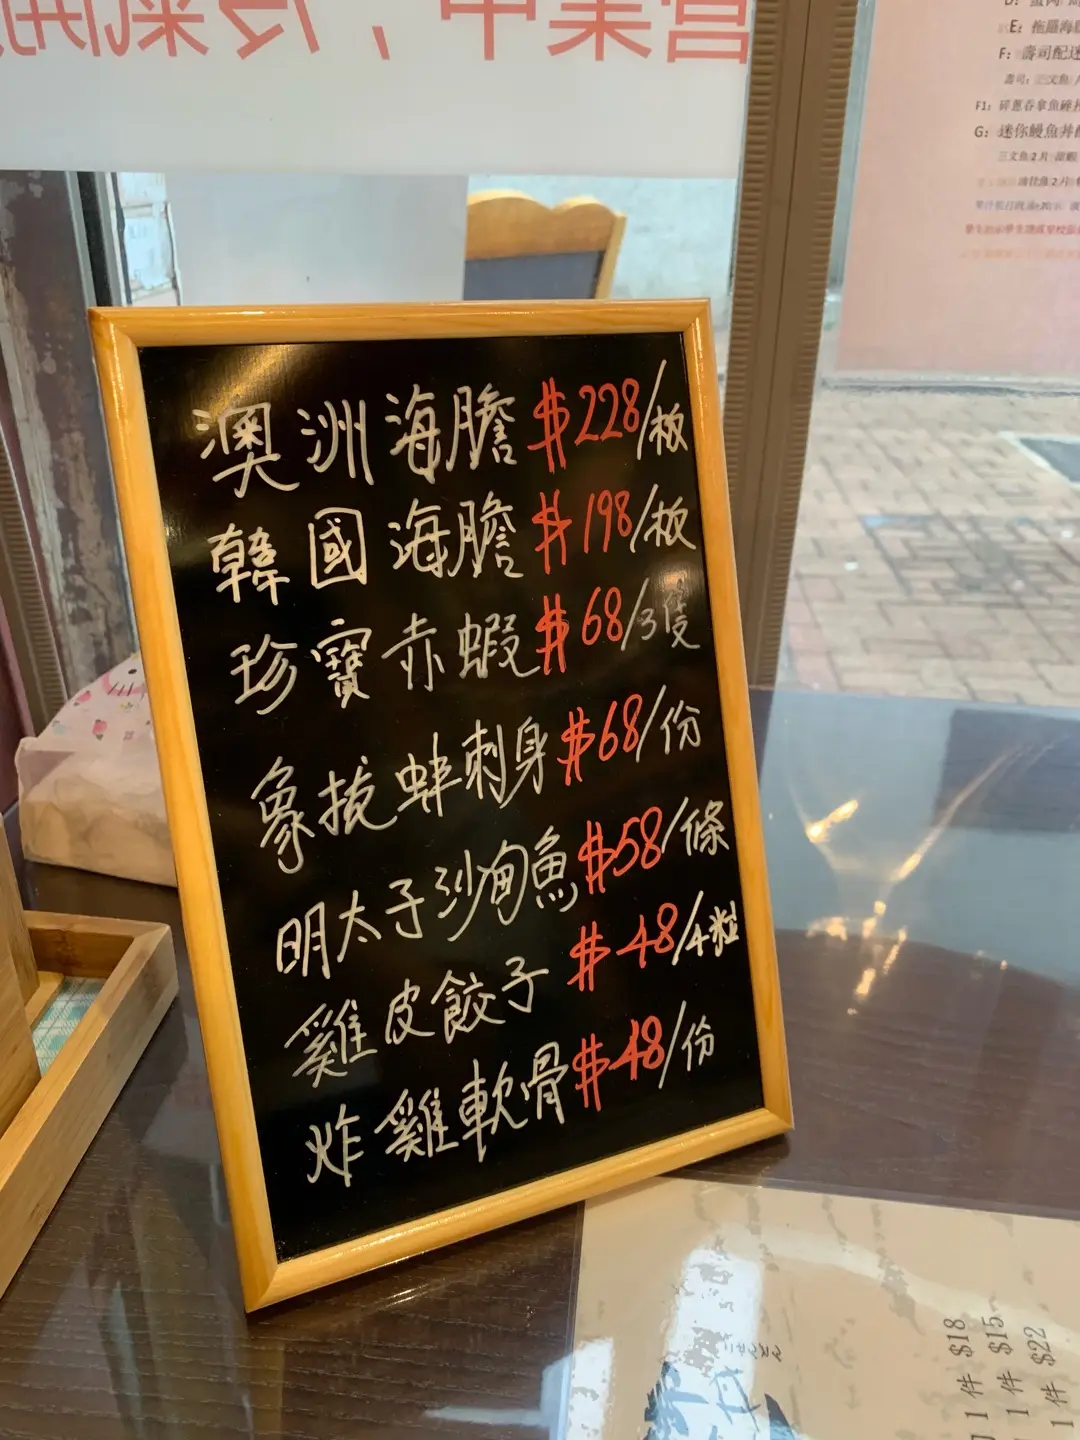 營業中，冷氣開
E: 拖羅海膽
F: 壽司配迷
G: 迷你鰻魚丼
澳洲海膽 $228/板
韓國海膽 $198/板
珍寶赤蝦 $68/3隻
象拔蚌刺身 $68/份
明太子沙甸魚 $58/條
雞皮餃子 $48/4粒
炸雞軟骨 $48/份
1 件 $18
1 件 $15
1 件 $22